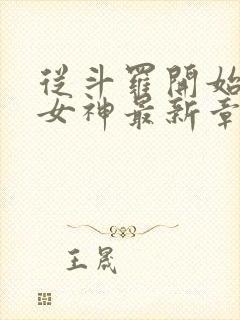 從斗羅開始
女神最新章
王晟